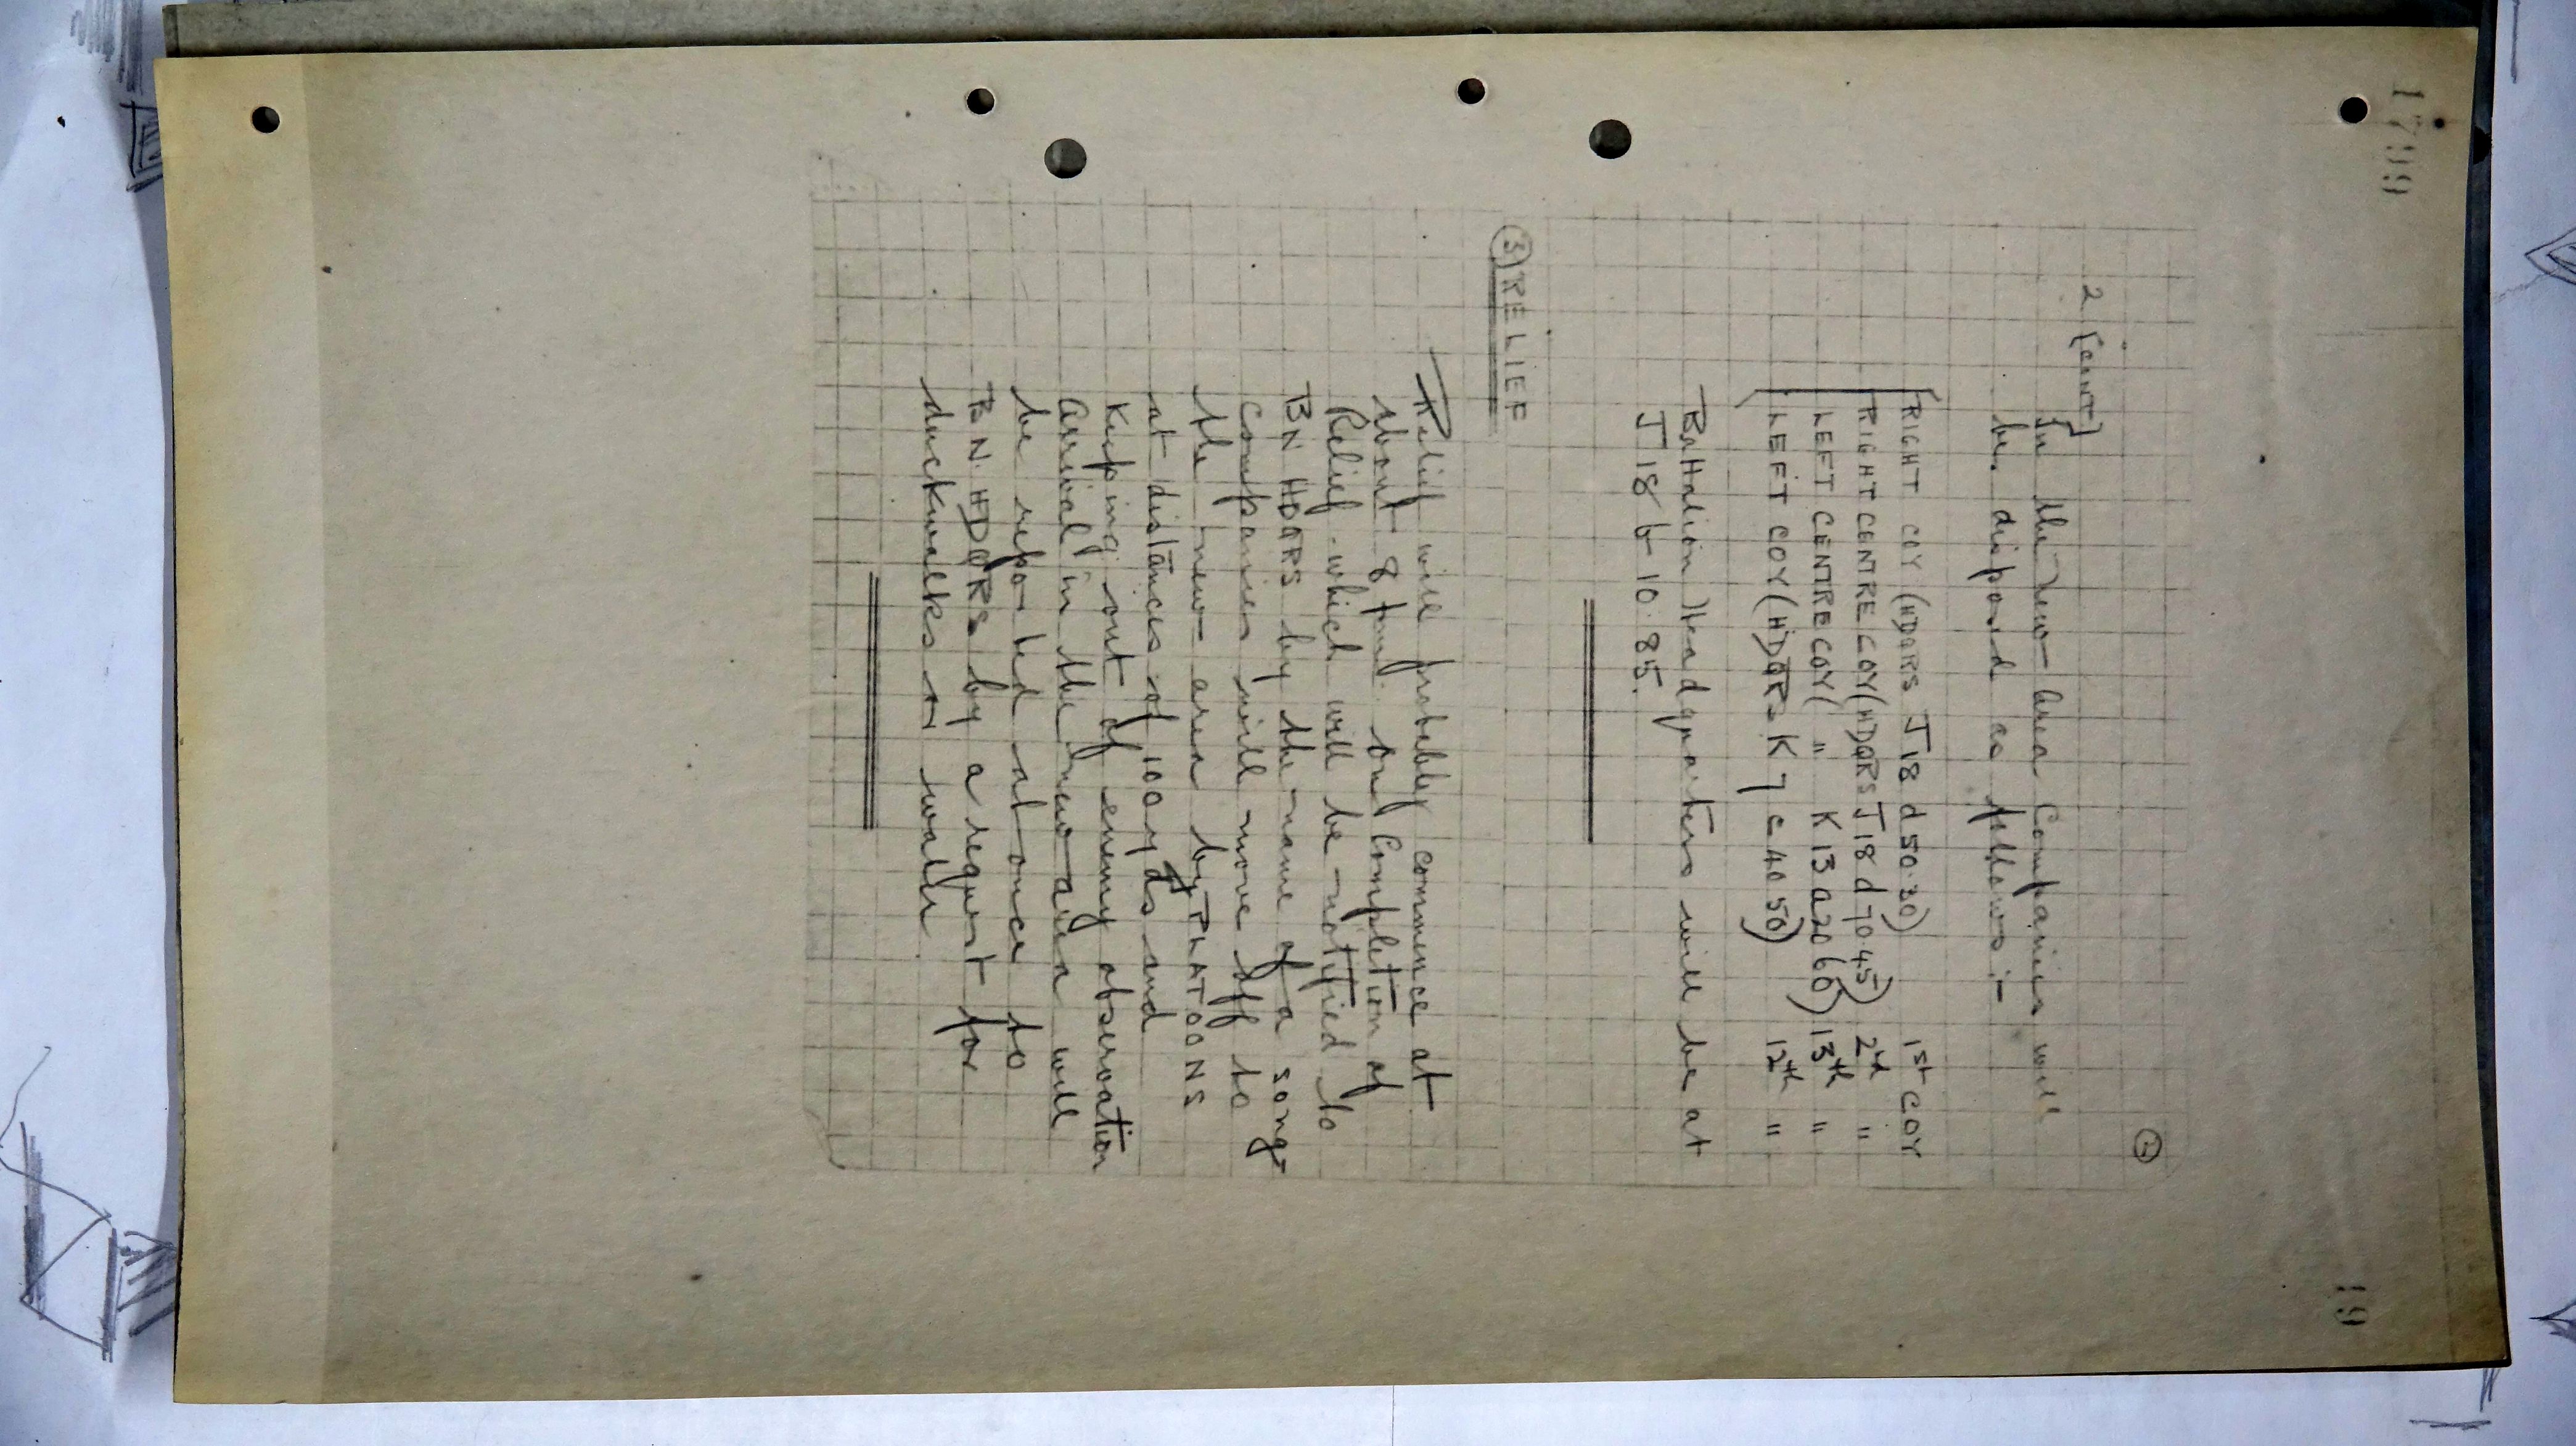 1799
19
②
2 (CONT)
In the new area Companies will
be disposed as follows :-
RIGHT COY (HDQRS J 18 d 50.30) 1st COY
RIGHT CENTRE COY (HDQRS J 18 d 70.45) 2nd "
LEFT CENTRE COY ( " K 13 a 20 60) 13th "
LEFT COY (HDQRS K 7 c 40 50) 12th "
Battalion Headquarters will be at
J 18 b 10.85.
③ RELIEF
Relief will probably commence at
about 8 pm. On Completion of
Relief which will be notified to
BN HDQRS by the name of a song
Companies will move off to
the new area by PLATOONS
at distances of 100 yds and
keeping out of enemy observation
Arrival in the new area will
be reported at once to
BN. HDQRS by a request for
duckwalks or water.